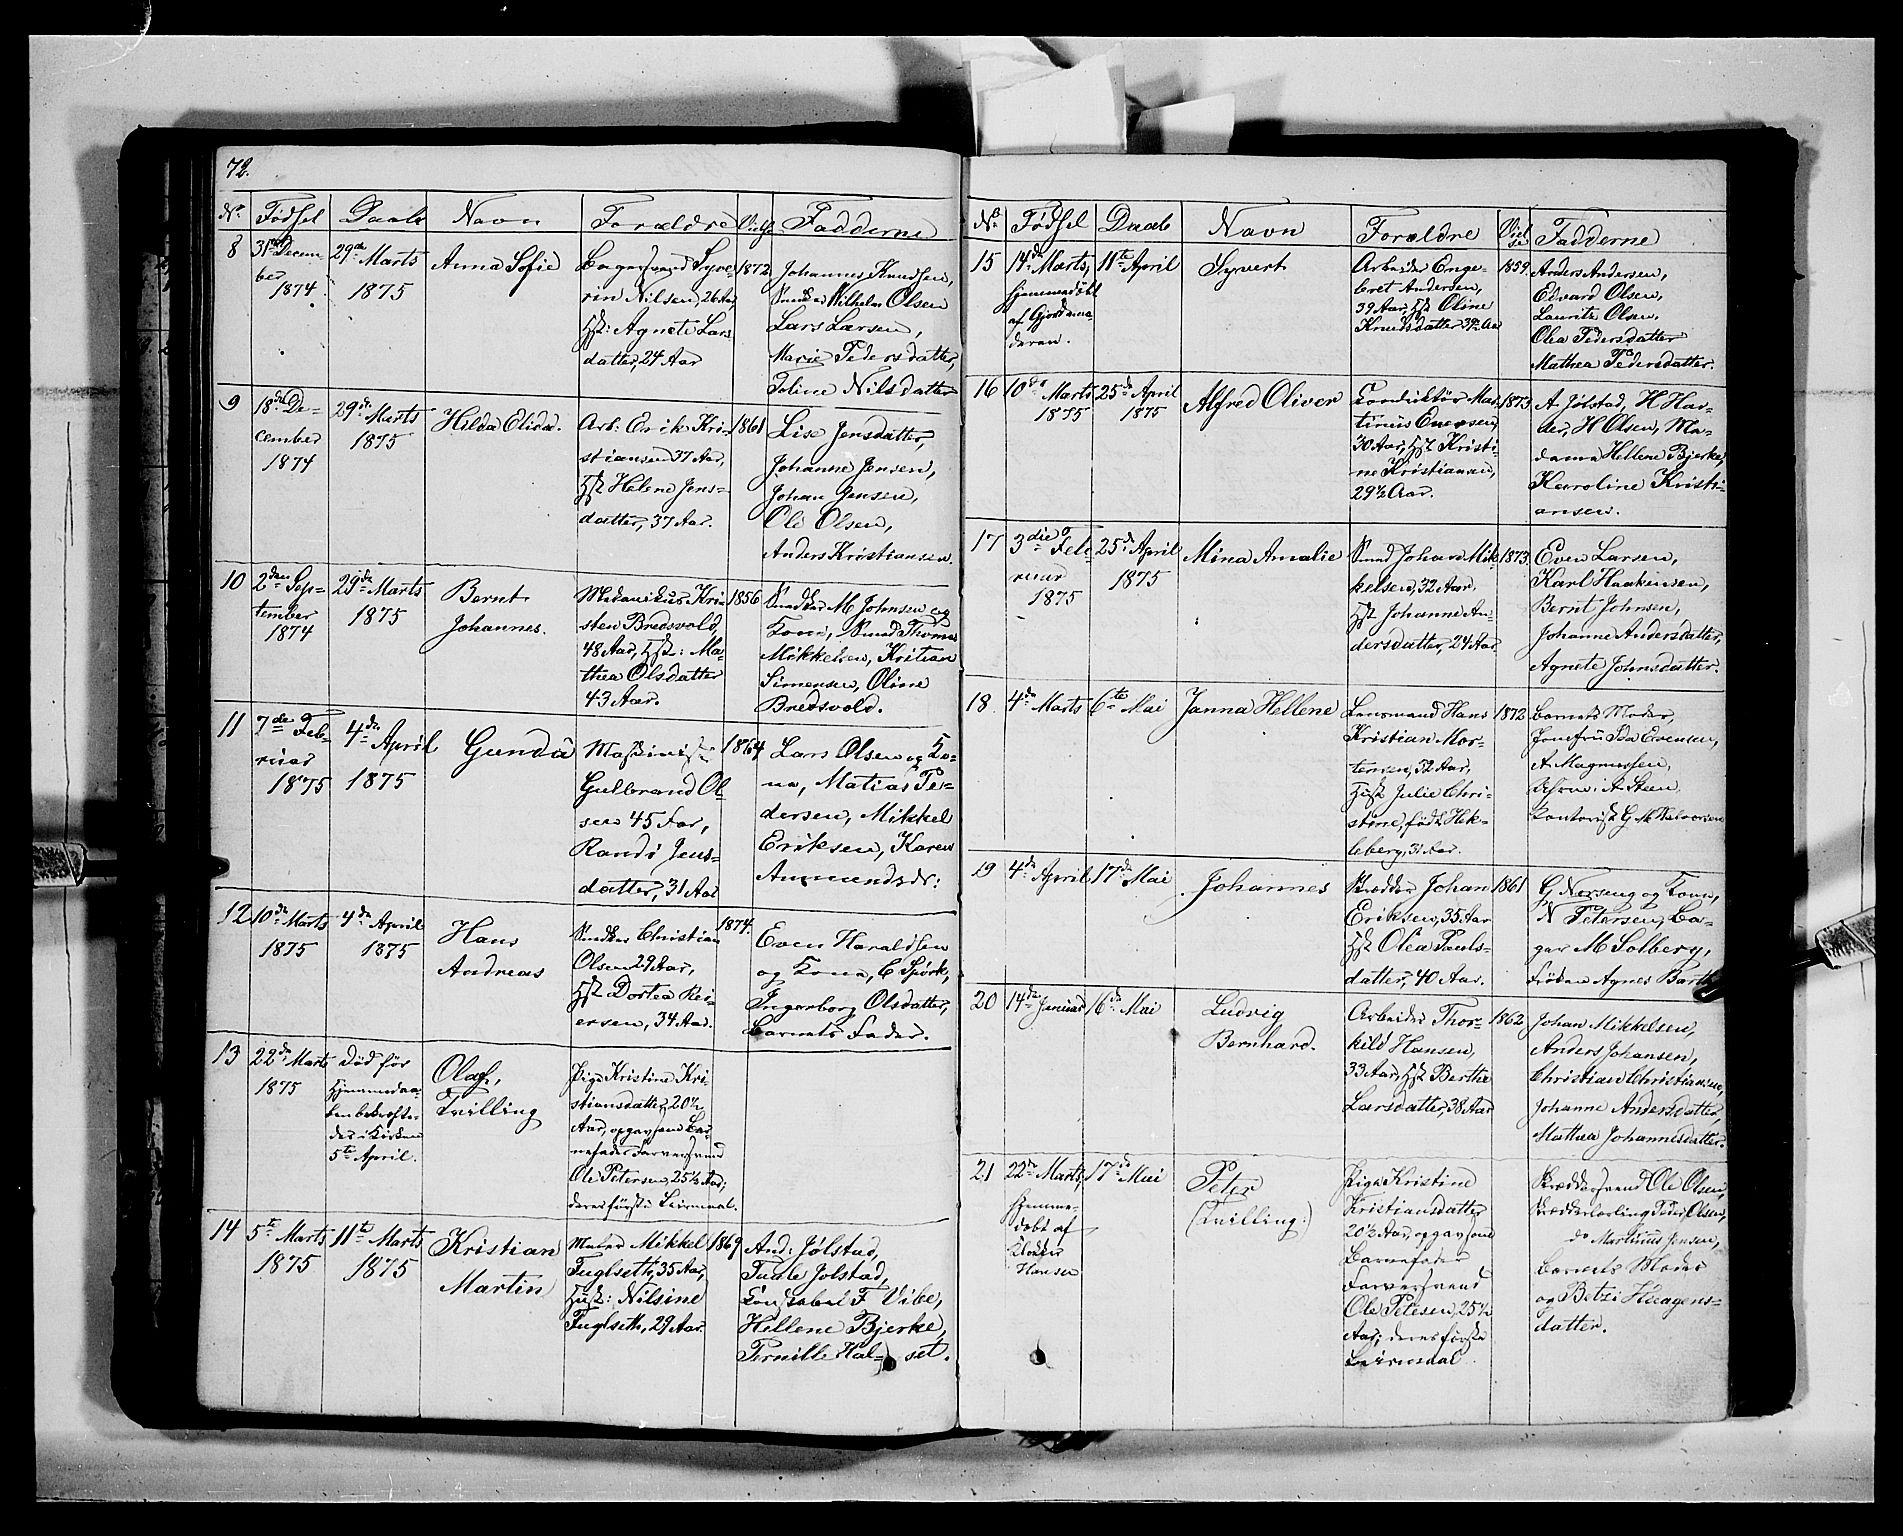 72.
No. Fødsel Daab Navn Forældre Vielse Fadderne
8 31te Decem-
ber
1874
29de Marts
1875
Anna Sofie
Bagersvend Syve-
rin Nilsen, 26 Aar,
Hst: Agnete Lars
datter, 24 Aar
1872
Johannes Knudsen,
Snedker Wilhelm Olsen
Lars Larsen,
Marie Pedersdatter,
Toline Nilsdatter
9 18de De-
cember
1874
29de Marts
1875
Hilda Elida.
Arb: Erik Kri-
stiansen 37 Aar,
Hst Helene Jens-
datter, 37 Aar.
1861
Lise Jensdatter,
Johanne Jensen,
Johan Jensen,
Ole Olsen,
Anders Kristiansen
10 2den Sep-
tember
1874
29de Marts
1875
Bernt
Johannes.
Mekanikus Kri-
sten Bredsvold,
48 Aar, Hst: Ma-
thea Olsdatter
43 Aar.
1856
Snedker M. Johnsen og
Kone, Smed Thomas
Mikkelsen, Kritian
Simensen, Oline
Bredsvold.
11 7de Feb-
ruar
1875
4de April
1875
Gunda
Maskinist
Gulbrand Ol-
sen 45 Aar,
Randi Jens-
datter, 31 Aar
1864
Lars Olsen og Ko-
na, Matias Pe-
dersen, Mikkel
Eriksen, Karen
Amundsdr:
12 10de Marts
1875
4de April
1875
Hans
Andreas
Snedker Christian
Olsen 29 Aar,
Hst Dortea Rei-
ersen, 34 Aar.
1874.
Even Haraldsen
og Kona, C Spørk,
Ingerborg Olsdatter,
Barnets Fader.
13 22de Marts
1875
Død før
Hjemmedaa-
ben bekræfte-
des i Kirken
5te April.
Olaf,
Tvilling
Pige Kristine Kri-
stiansdatter, 20½
Aar, opgav som Bar-
nefader Farversvend
Ole Petersen, 25½ Aar;
deres første Leiermaal.
14 5te Marts
1875
11te Marts
1875
Kristian
Martin
Maler Mikkel
Fuglseth, 35 Aar,
Hust: Nilsine
Fuglseth, 29 Aar.
1869
And: Jølstad,
Jølstad,
F Vibe,
Hellene Bjerke,
Pernille Hal-set.
No Fødsel Daab Navn Forældre Vielse Fadderne
15 14de Marts,
hjemmedøbt
af Gjordemo-
deren.
11te April
Syvert
Arbeider Enge-
bret Andersen,
39 Aar, Hst Oline
Knudsdatter 39 Aar
1859.
Anders Andersen,
Edvard Olsen,
Lauritz Olsen,
Olea Pedersdatter
Mathea Pedersdatter.
16 10de Marts
1875
25de April
1875
Alfred Oliver
Konduktør Mar-
tinus Evensen,
30 Aar, Hst Kristi-
ne Kristiansen,
29½ Aar.
1873
A Jølstad, H Har-
der, H Olsen, Ma-
dame Hellene Bjerke,
Karoline Kristi-
ansen.
17 3die Feb-
ruar
1875
25de April
1875
Mina Amalie
Smed Johan Mik-
kelsen, 32 Aar.
Hst Johanne An-
dersdatter, 24 Aar
1873
Even Larsen,
Karl Haakensen,
Bernt Johnsen,
Johanne Andersdatter,
Agnete Johnsdatter.
18. 4de Marts
6te Mai
Janna Hellene
Lensmand Hans
Kristian Mor-
tensen, 32 Aar,
Hst Julie Chri-
stine, født Hek-
leberg, 31 Aar.
1872
Barnets Moder,
Jomfru Ida Evensen,
A Magnussen,
A Steen,
Kontorist G. M. Halvorsen
19 4de April
17de Mai
Johannes
Skrædder Johan
Eriksen, 35 Aar
Hst Olea Pauls-
datter, 40 Aar.
1861
G Nerseng og Kone,
N Petersen, Ba-
ger M Solberg,
Frøken Agnes Barth
20 14de Januar
16de Mai
Ludvig
Bernhard.
Arbeider Thor-
kild Hansen,
33 Aar, Hst Berthe
Larsdatter, 38 Aar
1862
Johan Mikkelsen,
Anders Johansen,
Christian Christiansen,
Johanne Andersdatter,
Mathea Johannesdatter.
21 22de Marts,
hjemme-
døbt af
Klokker
Hansen
17de Mai
Peter
(Tvilling:)
Pige Kristine
Kristiansdatter
20½ Aar, opgav som
Barnefader
Farversvend
Ole Petesen, 25½
Aar; deres første
Leiermaal.
Skræddersvend Ole Olsen,
Skrædderlærling Peder Olsen,
do Martinus Jensen,
Barnets Moder
og Betzi Haagens-
datter.